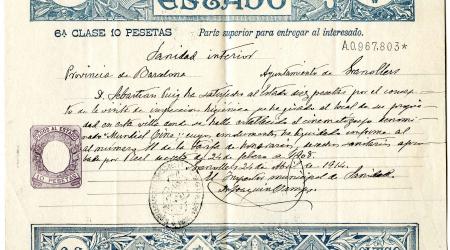 ESTADO
6ª CLASE 10 PESETAS Parte superior para entregar al interesado.
A.0,967.803*
Sanidad interior
Provincia de Barcelona Ayuntamiento de Granollers
D. Sebastián Puig ha satisfecho al estado diez pesetas por el concep-
to de la visita de inspección higiénica girada al local de su propie-
dad en esta villa donde se halla instalado el cinematógrafo denomi-
nado "Mundial Cine" cuyos emolumentos ha liquidado conforme al
al número de la tarifa de honorarios, derechos sanitarios apro-
bada por Real decreto de 24 de febrero de 1908.
Granollers 24 de Abril de 1914.
El Inspector municipal de Sanidad
Joaquín
10 PESETAS